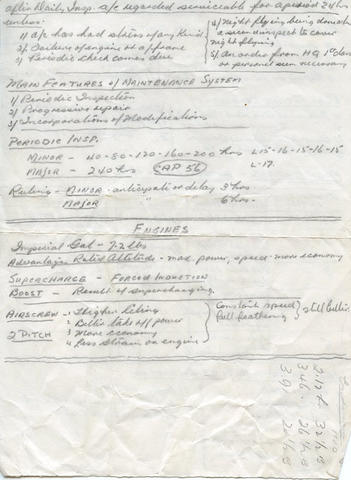 after Daily Insp. a/c regarded serviceable for a period 24 hrs
unless.
1/ a/c has had stress of any kind
2/ Failure of engine or airframe
3/ Periodic check comes due
4/ Night flying being done
a second inspect to cover
night flying
5/ An order from HQ 1st Class
or personnel seen necessary
MAIN FEATURES of MAINTENANCE SYSTEM
1/ Periodic Inspection
2/ Progressive repair
3/ Incorporations of Modifications
PERIODIC INSP.
MINOR - 40-80-120-160-200 hrs L15-16-15-16-15
MAJOR - 240 hrs (AP 56) L-17.
Ruling - MINOR - anticipation or delay 3 hrs
MAJOR " 6 hrs.
ENGINES
Imperial Gal - 7.2 lbs
Advantages Rated Altitude - max. power, speed - more economy
SUPERCHARGE - FORCED INDUCTION
BOOST - Result of supercharging.
AIRSCREW - 1 Higher Ceiling
2 Better take off power
2 PITCH 3 More economy
4 Less Strain on engine
Constant speed
Full feathering
still better